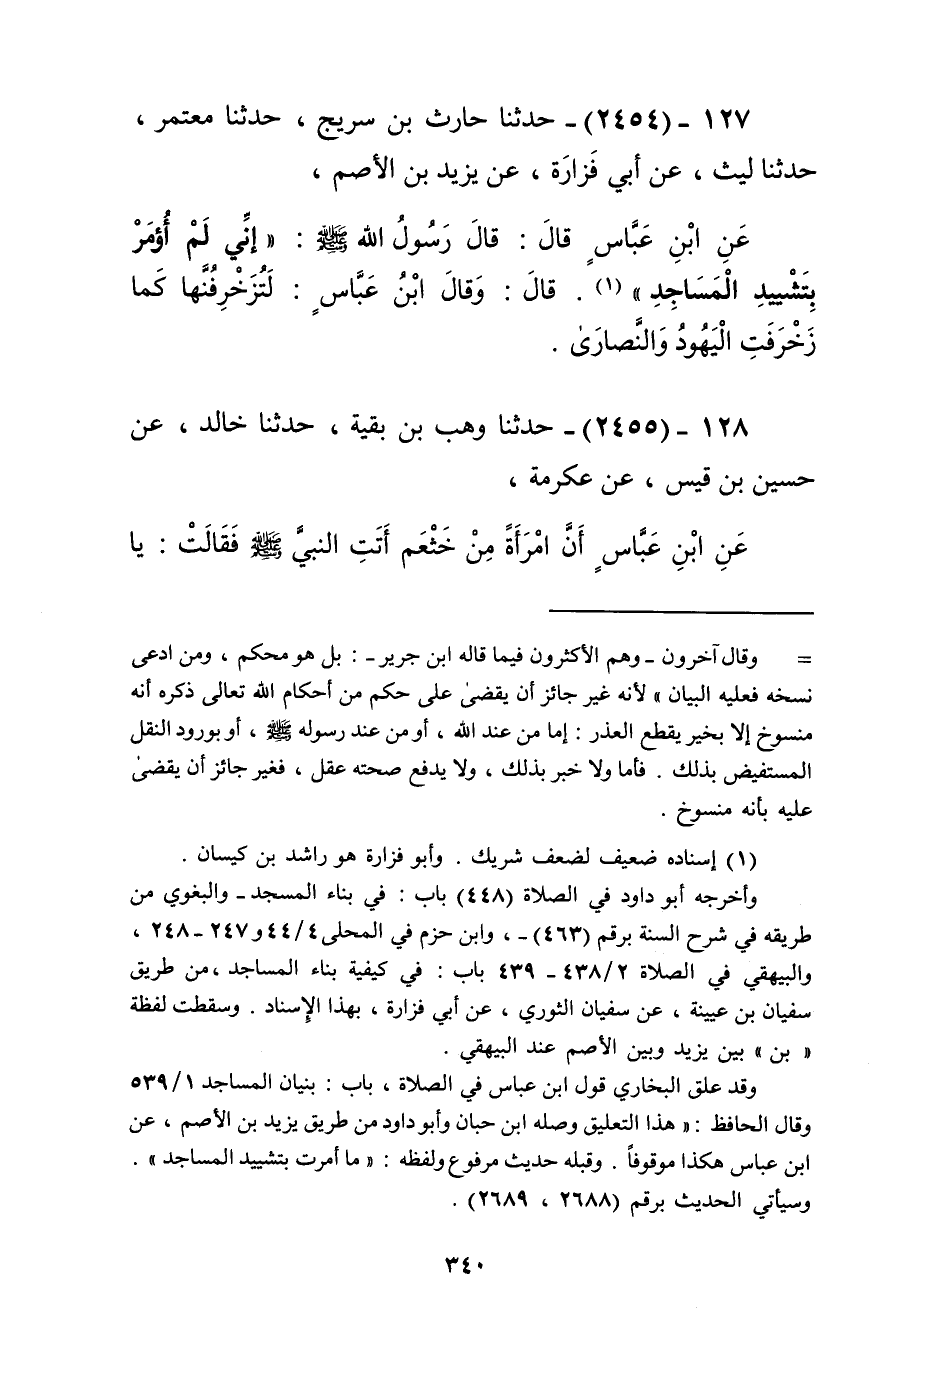 ١٢٧ ـ (٢٤٥٤) ـ حدثنا حارث بن سريج ، حدثنا معتمر ،
حدثنا ليث ، عن أبي فَزارَة ، عن يزيد بن الأصم ،
عَنِ ابْنِ عَبَّاسٍ قالَ : قالَ رَسُولُ الله ﷺ : « إنِّي لَمْ أُؤمَرْ
بِتَشْيِيدِ الْمَسَاجِدِ » (١) . قالَ : وَقالَ ابْنُ عَبَّاسٍ : لَتُزَخْرِفُنَّها كَما
زَخْرَفَتِ الْيَهُودُ وَالنَّصارَىٰ .
١٢٨ ـ (٢٤٥٥) ـ حدثنا وهب بن بقية ، حدثنا خالد ، عن
حسين بن قيس ، عن عكرمة ،
عَنِ ابْنِ عَبَّاسٍ أَنَّ امْرَأَةً مِنْ خَثْعَم أَتَتِ النبيَّ ﷺ فَقَالَتْ : يا
= وقال آخرون ـ وهم الأكثرون فيما قاله ابن جرير ـ : بل هو محكم ، ومن ادعى
نسخه فعليه البيان » لأنه غير جائز أن يقضىٰ على حكم من أحكام الله تعالى ذكره أنه
منسوخ إلا بخبر يقطع العذر : إما من عند الله ، أو من عند رسوله ﷺ ، أو بورود النقل
المستفيض بذلك . فأما ولا خبر بذلك ، ولا يدفع صحته عقل ، فغير جائز أن يقضىٰ
عليه بأنه منسوخ .
(١) إسناده ضعيف لضعف شريك . وأبو فزارة هو راشد بن كيسان .
وأخرجه أبو داود في الصلاة (٤٤٨) باب : في بناء المسجد ـ والبغوي من
طريقه في شرح السنة برقم (٤٦٣) ـ ، وابن حزم في المحلى ٤/٤٤ و ٢٤٧ ـ ٢٤٨ ،
والبيهقي في الصلاة ٤٣٨/٢ ـ ٤٣٩ باب : في كيفية بناء المساجد ، من طريق
سفيان بن عيينة ، عن سفيان الثوري ، عن أبي فزارة ، بهذا الإسناد . وسقطت لفظة
« بن » بين يزيد وبين الأصم عند البيهقي .
وقد علق البخاري قول ابن عباس في الصلاة ، باب : بنيان المساجد ٥٣٩/١
وقال الحافظ : « هذا التعليق وصله ابن حبان وأبو داود من طريق يزيد بن الأصم ، عن
ابن عباس هكذا موقوفاً . وقبله حديث مرفوع ولفظه : « ما أمرت بتشييد المساجد » .
وسيأتي الحديث برقم (٢٦٨٨ ، ٢٦٨٩) .
٣٤٠